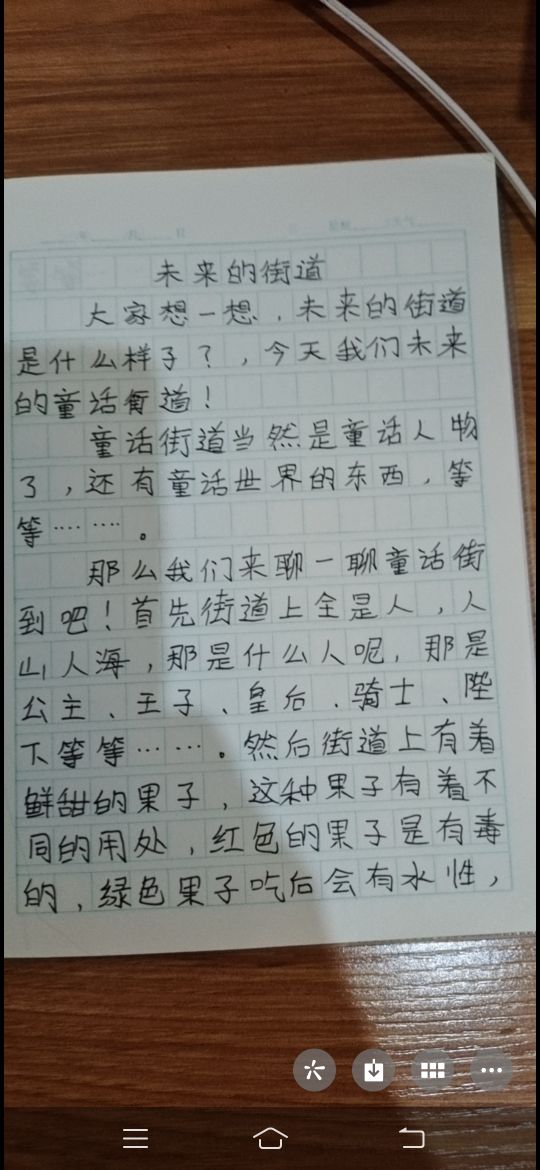 未来的街道
大家想一想，未来的街道
是什么样子？，今天我们未来
的童话街道！
童话街道当然是童话人物
了，还有童话世界的东西，等
等……。
那么我们来聊一聊童话街
到吧！首先街道上全是人，人
山人海，那是什么人呢，那是
公主、王子、皇后、骑士、陛
下等等……。然后街道上有着
鲜甜的果子，这种果子有着不
同的用处，红色的果子是有毒
的，绿色果子吃后会有水性，